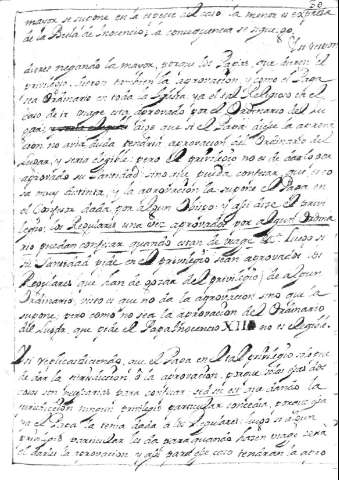 mayor se supone en la especie del caso la menor es expressa
de la Bula de Inocencio, la consequencia se sigue.
diras negando la mayor, porque los Papas, que dieron el
privilegio, dieron tambien la aprovacion, y como el Papa
sea Ordinario en toda la Iglesia, ya el tal Religioso en el
caso de ir esta aprovado por el Ordinario del Lu
gar; luego que si el Papa diesse la aprova
cion no avia duda tendria aprovacion del Ordinario del
Lugar, y seria eligible: pero el privilegio no es de darlo por
aprovado su Santidad sino que pueda confesar, que es co
sa muy distinta, y la aprovacion la supone el Papa en
el Confesor dada por algun Obispo: y assi dize el privi
legio: los Regulares una vez aprovados por algun Ordina
rio puedan confesar quando Luego si
su Santidad pide en el privilegio sean aprovados los
Regulares que han de gozar del privilegio, de algun
Ordinario, visto es que no da la aprovacion sino que la
supone, pero como no sea la aprovacion del Ordinario
del Lugar, que pide el Papa Inocencio XII no es eligible.
que el Papa en tal privilegio
de dar la jurisdiccion o la aprovacion, porque solas estas dos
cosas son necesarias para confesar sed sic est que dando la
jurisdiccion ningun privilegio particular concedia, porque
ya el Papa la tenia dada a los Regulares luego si algun
privilegio particular les da para quando hazen viage sera
el darles la aprovacion y assi para esse caso tendran la apro